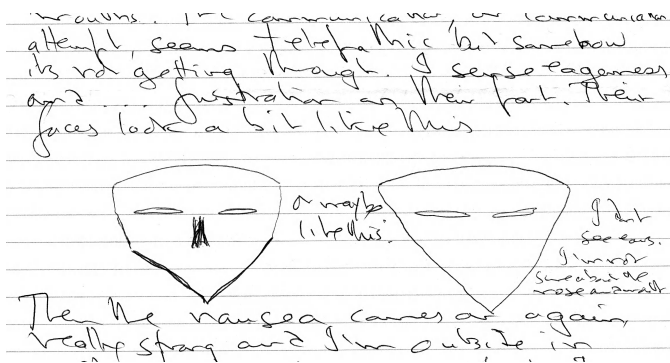 mouths. The communication, or communication
attempt, seems telepathic but somehow
its not getting through. I sense eagerness
and .... frustration on their part. Their
faces look a bit like this
or maybe
like this.
I dont
see ears.
I'm not
sure about the
nose and mouth
Then the nausea comes on again,
really strong and I'm outside in